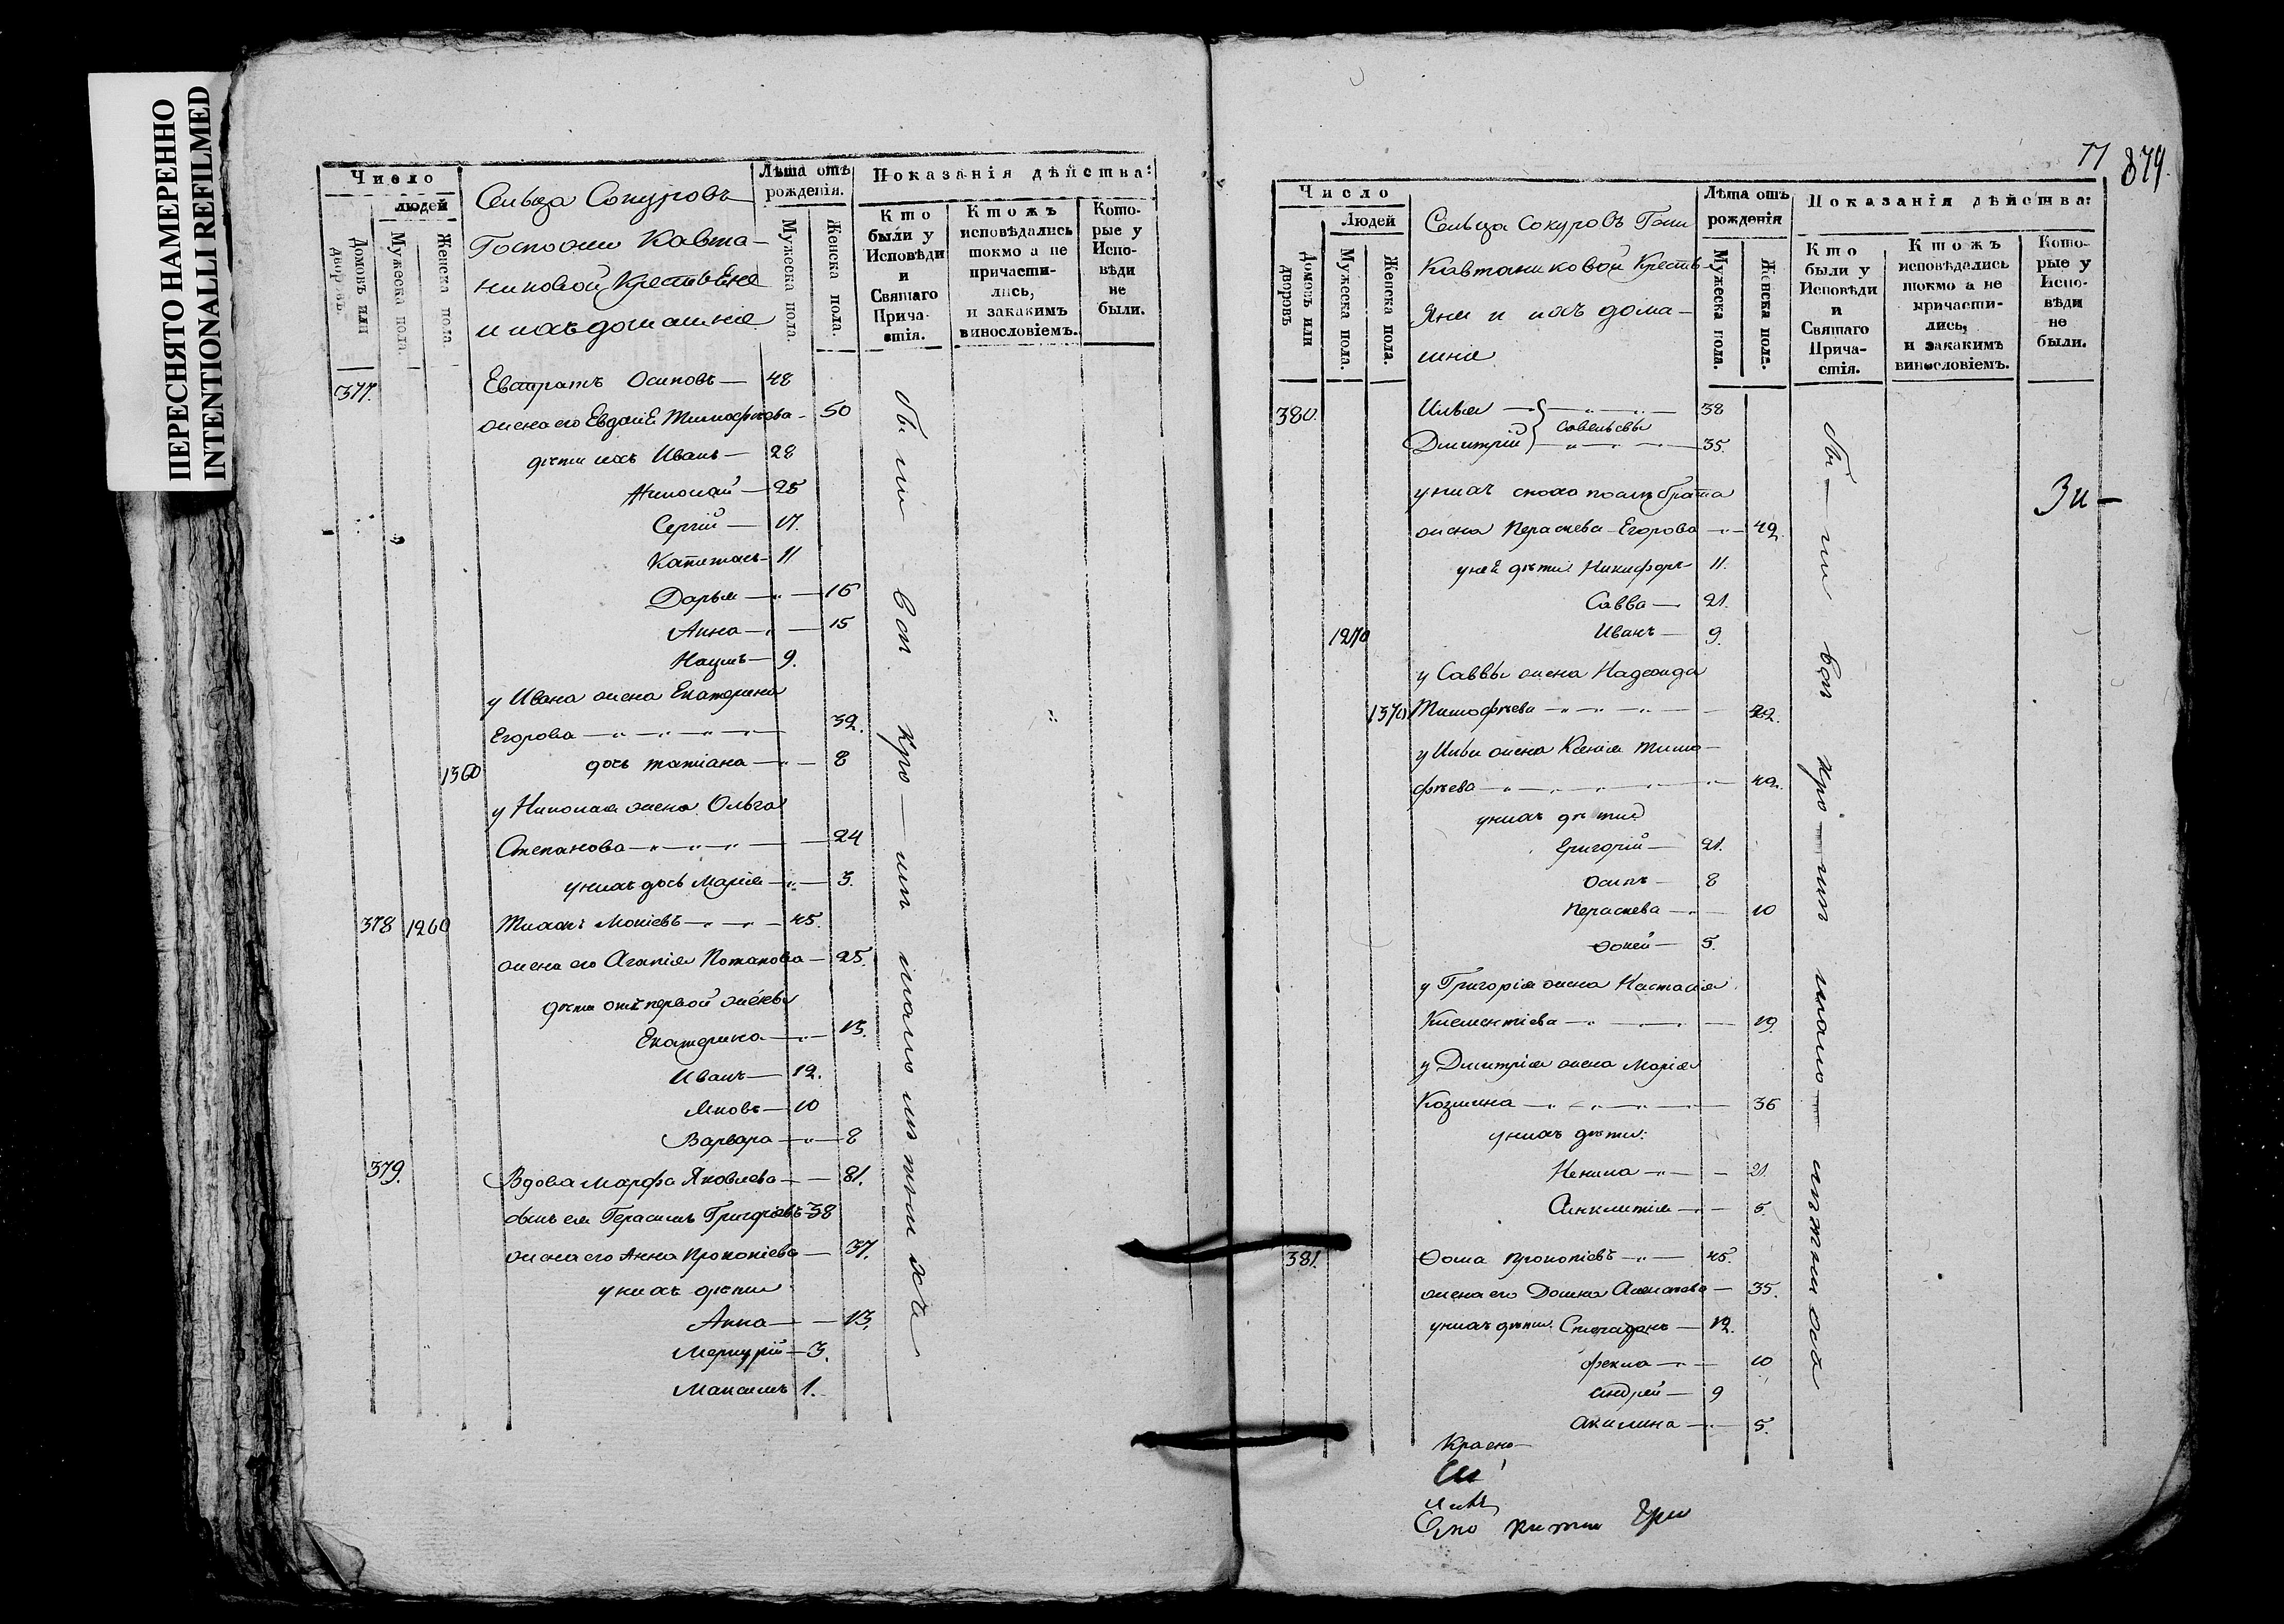 ПЕРЕСНЯТО НАМЕРЕННО
INTENTIONALLI REFILMED
Число
людей
Домовъ или дворовъ.
Мужеска пола.
Женска пола.
Сельца Сокуровъ
Госпожи Кавта-
никовой Крестьяне
и ихъ домашніе
Лѣта отъ рожденія.
Мужеска пола.
Женска пола.
Показанія дѣйства:
Кто были у Исповѣди и Святаго Прича-стія.
Ктожъ исповѣдались токмо а не причасти-лись, и закакимъ винословіемъ.
Кото-рые у Испо-вѣди не были.
377. Евстратъ Осиповъ — 48
жена его Евдокія Тимофѣева — 50
дѣти ихъ Иванъ — 28
Николай — 25
Сергій — 17.
Капитонъ — 11
Дарья — 16
Анна — 15
Наумъ — 9.
у Ивана жена Екатерина
Егорова — 32.
1360 дочь Татіана — 8
у Николая жена Ольга
Степанова — 24
у нихъ дочь Марія — 3.
378 1260 Тихонъ Мокіевъ — 45.
жена его Агапія Потапова — 25.
дѣти отъ первой жены
Екатерина — 13.
Иванъ — 12.
Яковъ — 10
Варвара — 8
379. Вдова Марфа Яковлева — 81.
сынъ ея Герасимъ Григорьевъ 38
жена его Анна Прокопіева — 37.
у нихъ дѣти
Анна — 13.
Меркурій — 3.
Максимъ 1.
бы ли
77
879.
Число
Людей
Домовъ или дворовъ
Мужеска пола.
Женска пола.
Сельца Сокуровъ Госп
Кавтаниковой Кресть-
яни и ихъ дома-
шніе
Лѣта отъ рожденія
Мужеска пола.
Женска пола.
Показанія дѣйства:
Кто были у Исповѣди и Святаго Прича-стія.
Ктожъ исповѣдались токмо а не причасти-лись, и закакимъ винословіемъ.
Кото-рые у Испо-вѣди не были.
380. Илья — 38
Савельевы
Дмитрій — 35.
у нихъ брата
жена Параскева Егорова — 42
у неё дѣти Никифоръ 11.
Савва — 21.
1270 Иванъ — 9.
у Саввы жена Надежда
1370 Тимофѣева — 22.
у Ильи жена Ксенія Тимо-
фѣева — 42.
у нихъ дѣти
Григорій — 21.
Осипъ — 8
Параскева — 10
Фокей — 5.
у Григорія жена Настасія
Клементіева — 19.
у Дмитрія жена Марія
Козмина — 36
у нихъ дѣти:
Ненила — 21.
Синклитія — 5.
381. Ѳома Прокопіевъ — 45.
жена его Домна — 35.
у нихъ дѣти Спиридонъ — 12.
Фекла — 10
Андрей — 9
Акилина — 5.
бы — ли